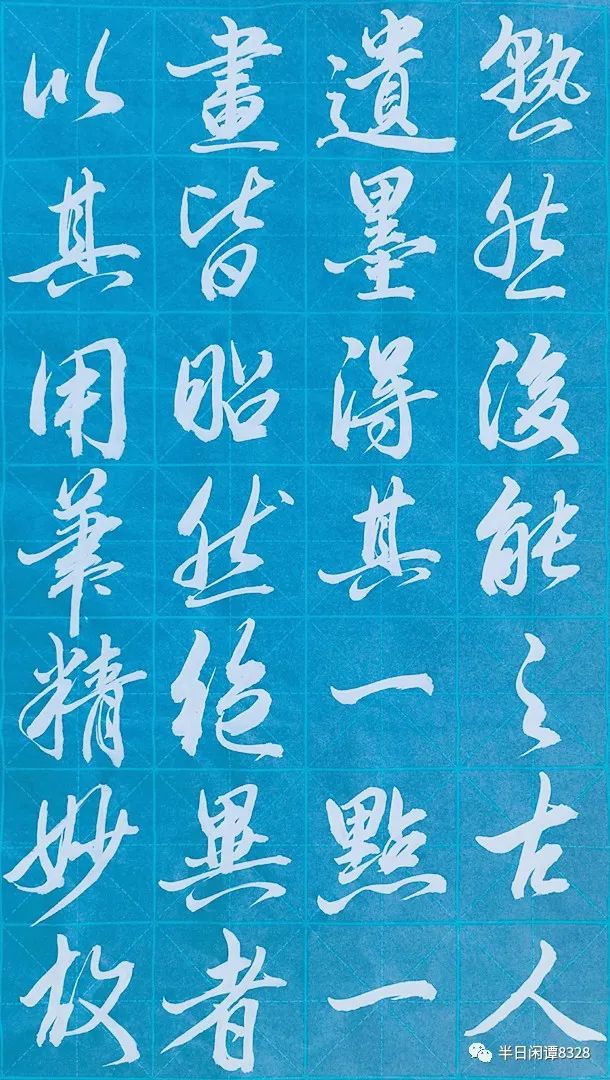 熟然後能之古人
遺墨得其一點一
畫皆昭然絕異者
以其用筆精妙故
半日闲谭8328